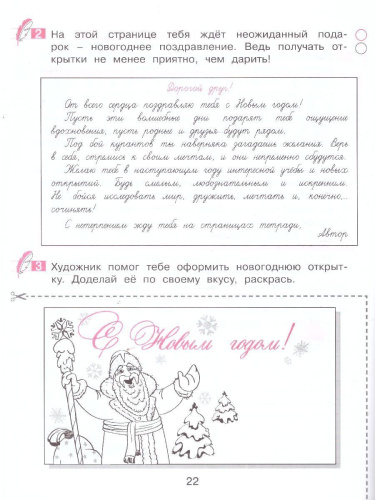 2 На этой странице тебя ждёт неожиданный пода-
рок – новогоднее поздравление. Ведь получать от-
крытки не менее приятно, чем дарить!
Дорогой друг!
От всего сердца поздравляю тебя с Новым годом!
Пусть эти волшебные дни подарят тебе ощущение
вдохновения, пусть родные и друзья будут рядом.
Под бой курантов ты наверняка загадаешь желания. Верь
в себя, стремись к своим мечтам, и они непременно сбудутся.
Желаю тебе в наступающем году интересной учёбы и новых
открытий. Будь смелым, любознательным и искренним.
Не бойся исследовать мир, дружить, мечтать и, конечно,
сочинять!
С нетерпением жду тебя на страницах тетради,
Автор
3 Художник помог тебе оформить новогоднюю открыт-
ку. Доделай её по своему вкусу, раскрась.
С Новым годом!
22